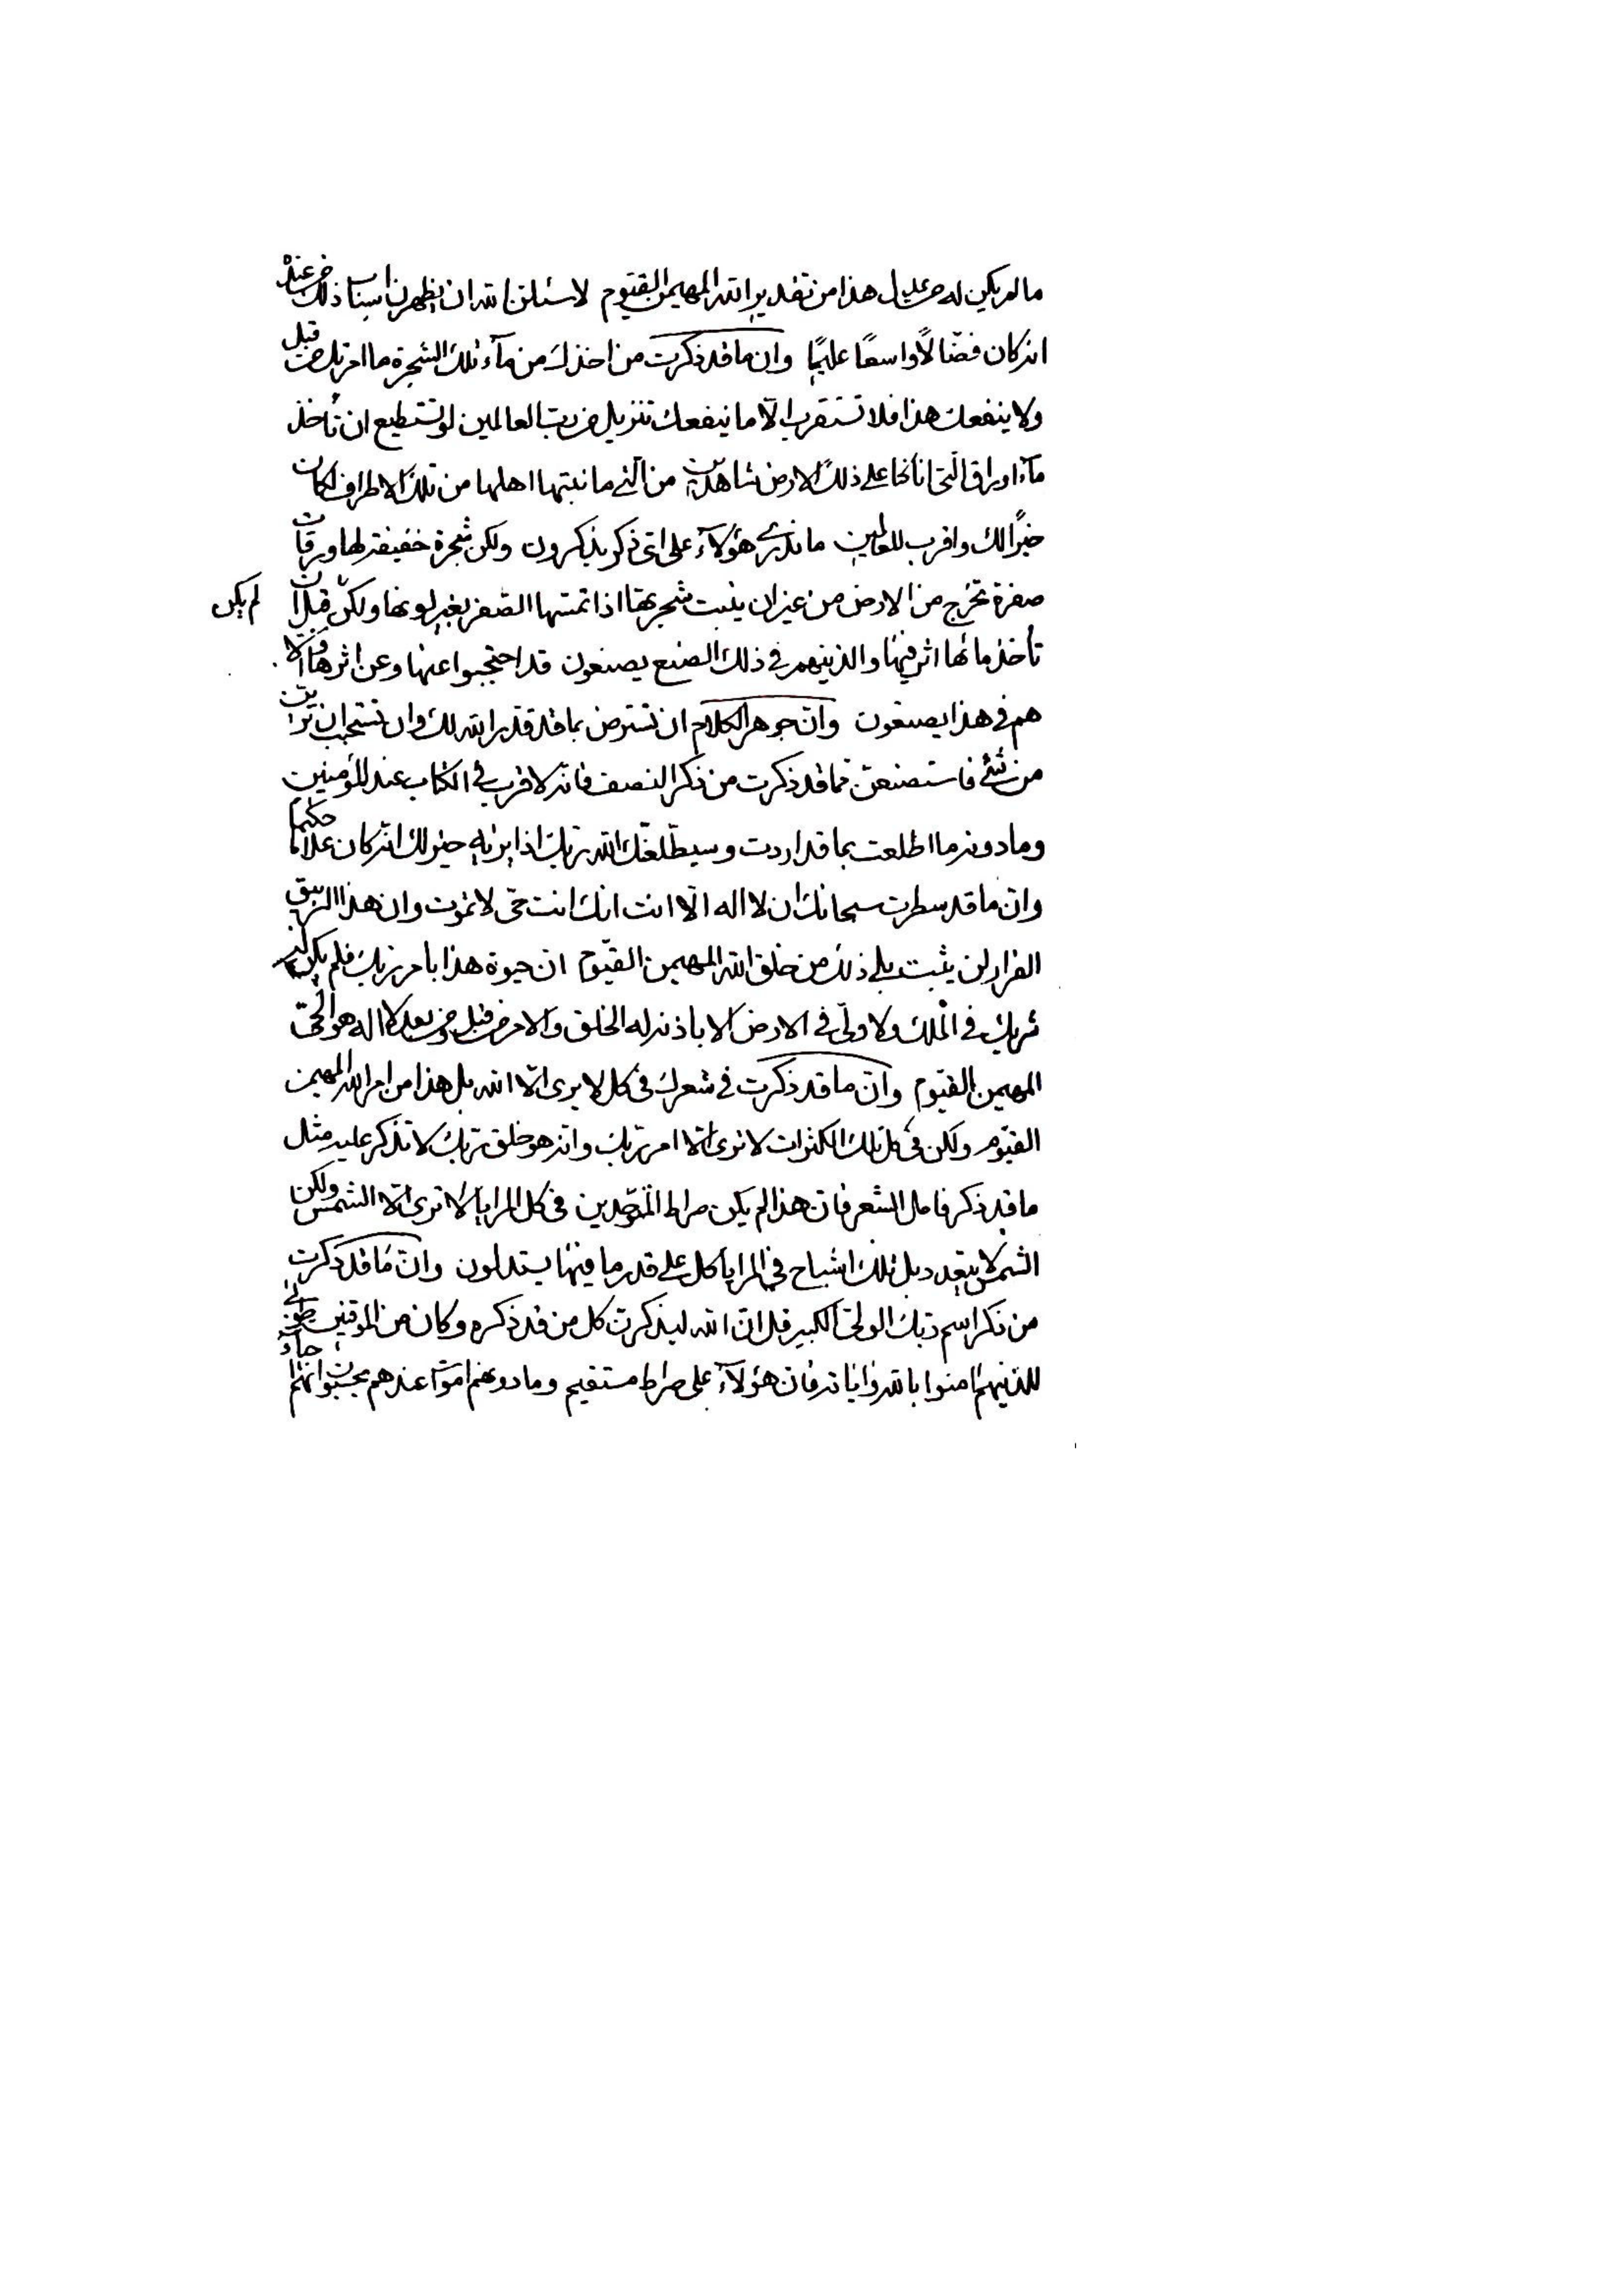 ما لم يكن له من عديل هذا من تقدير الله المهيمن القيوم لاسئلن الله ان يظهرن اسباب ذلك من عنده
انه كان فضّالًا واسعًا عليمًا وان ما قد ذكرت من اخذك من مآء تلك الشجرة ما امرناك من قبل
ولا ينفعك هذا فلا تستقرب الّا ما ينفعك تنزيل من رب العالمين لو تستطيع ان تأخذ
مآء اوراق التي على ذلك الارض شاهدت من التي ما نبتها اهلها من تلك الاطراف لكان
خيرًا لك واقرب للعالمين ما نذرى هؤلآء على اى ذكر يذكرون ولكن شجرة خفيفة لها ورقات
صفرة تخرج من الارض من غير ان ينبت شجرتها اذا تمسها الصفر يغير لونها ولكن قبل ان لم يكن
تأخذ مائها اثر فيها والذينهم في ذلك الصنع يصنعون قد احتجبوا عنها وعن اثرها والا
هم في هذا يصنعون وان جوهر الكلام ان تسترض بما قد قدر الله لك وان تستحب ان ترتبن
من شئ فاستصنعن مما قد ذكرت من ذكر النصف فانه لاقرب في الكتاب عند المؤمنين
وما دونه ما اطلعت بما قد اردت وسيطلعنك الله ربك اذا يريه خير لك انه كان علامًا حكيمًا
وان ما قد سطرت سبحانك ان لا اله الّا انت انك انت حى لا تموت وان هذا الزيبق
الفرار لن يثبت بلى ذلك من خلق الله المهيمن القيوم ان حيوة هذا بامر ربك فلم يكن له
شريك في الملك ولا ولى في الارض الا باذنه له الخلق والامر من قبل ومن بعد لا اله هو الحى
المهيمن القيوم وان ما قد ذكرت في شعرك في كل لا يرى الّا الله بل هذا من امر الله المهيمن
القيوم ولكن في كل تلك الكثرات لا ترى الّا امر ربك وانه هو خلق ربك لا تذكر عليه مثل
ما قد ذكر قامل الشعر فان هذا لم يكن صراط الموحّدين في كل المرايا لا ترى الّا الشمس ولكن
الشمس لا يتعدد بل تلك اشباح في المرايا كل على قدر ما فيها يستدلون وان ما قد ذكرت
من ذكر اسم ربك الولى الكبير قل ان الله ليذكرن كل من قد ذكره وكان من الموقنين طوبى
للذينهم امنوا بالله واياته فان هؤلآء على صراط مستقيم وما دونهم اموات عندهم يحسبون انهم احيآء